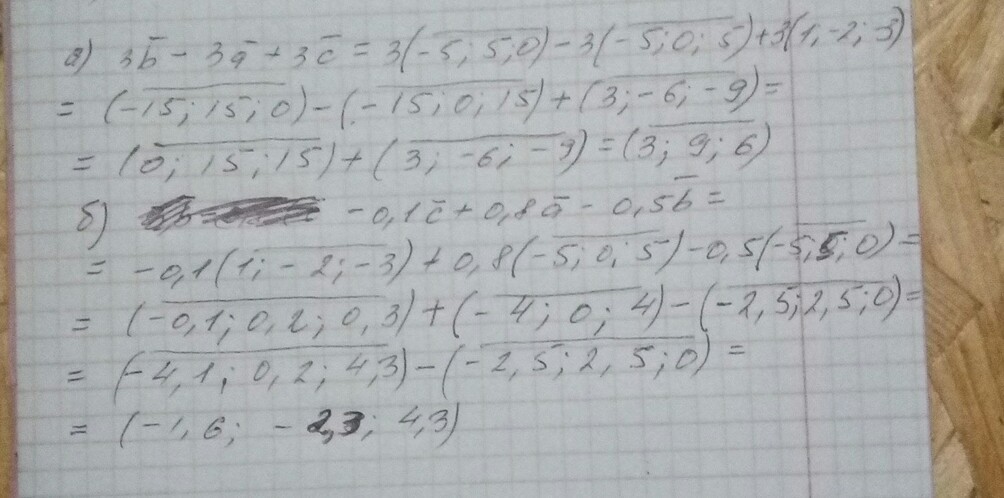 а) 3b̅ - 3a̅ + 3c̅ = 3(-5; 5; 0) - 3(-5; 0; 5) + 3(1; -2; 3)
= (-15; 15; 0) - (-15; 0; 15) + (3; -6; -9) =
= (0; 15; 15) + (3; -6; -9) = (3; 9; 6)
б) -0,1c̅ + 0,8a̅ - 0,5b̅ =
= -0,1(1; -2; -3) + 0,8(-5; 0; 5) - 0,5(-5; 5; 0) =
= (-0,1; 0,2; 0,3) + (-4; 0; 4) - (-2,5; 2,5; 0) =
= (-4,1; 0,2; 4,3) - (-2,5; 2,5; 0) =
= (-1,6; -2,3; 4,3)